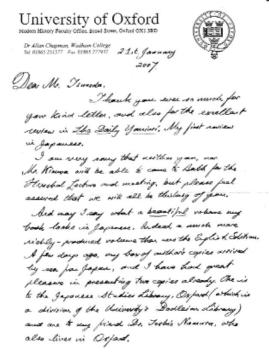 University of Oxford
Modern History Faculty Office, Broad Street, Oxford OX1 3BD
Dr Allan Chapman, Wadham College
21st January
2007
Dear Mr.
Thank you ever so much for
your kind letter, and also for the excellent
review in The Daily Yomiuri, my first review
in Japanese.
I am very sorry that neither you, nor
Mr. Kimura will be able to come to Bath for the
Herschel Lecture and meeting, but please feel
assured that we will all be thinking of you.
And may I say what a beautiful volume my
book looks in Japanese. Indeed a much more
richly-produced volume than was the English Edition.
A few days ago, my box of author's copies arrived
by sea from Japan, and I have had great
pleasure in presenting two copies already. One is
to the Japanese Studies Library, Oxford (which is
a division of the University's Bodleian Library)
and one to my friend Dr. who
also lives in Oxford.